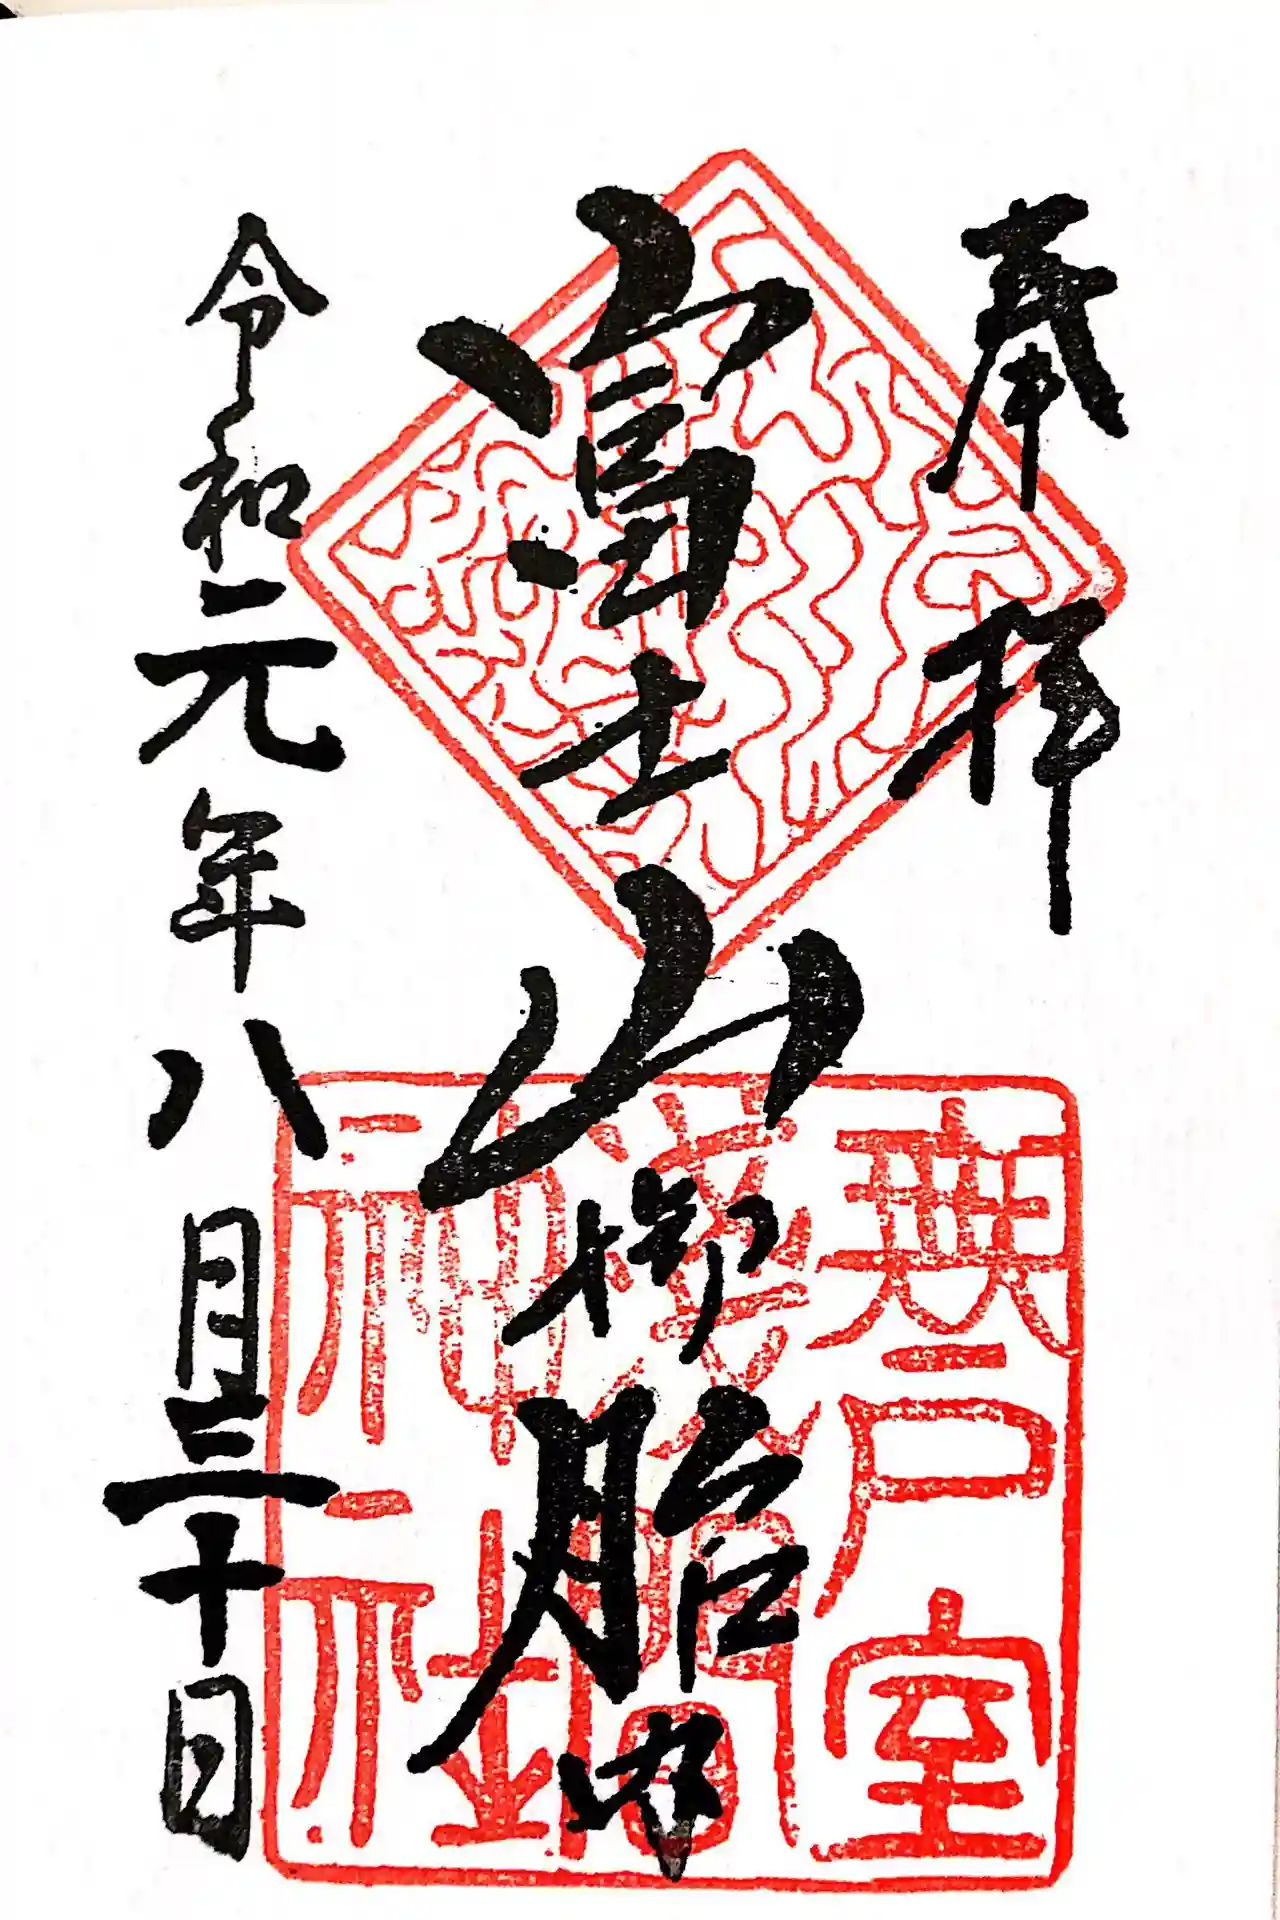 奉拝
富士山御胎内
令和元年八月三十日
無戸室
淺間
神社